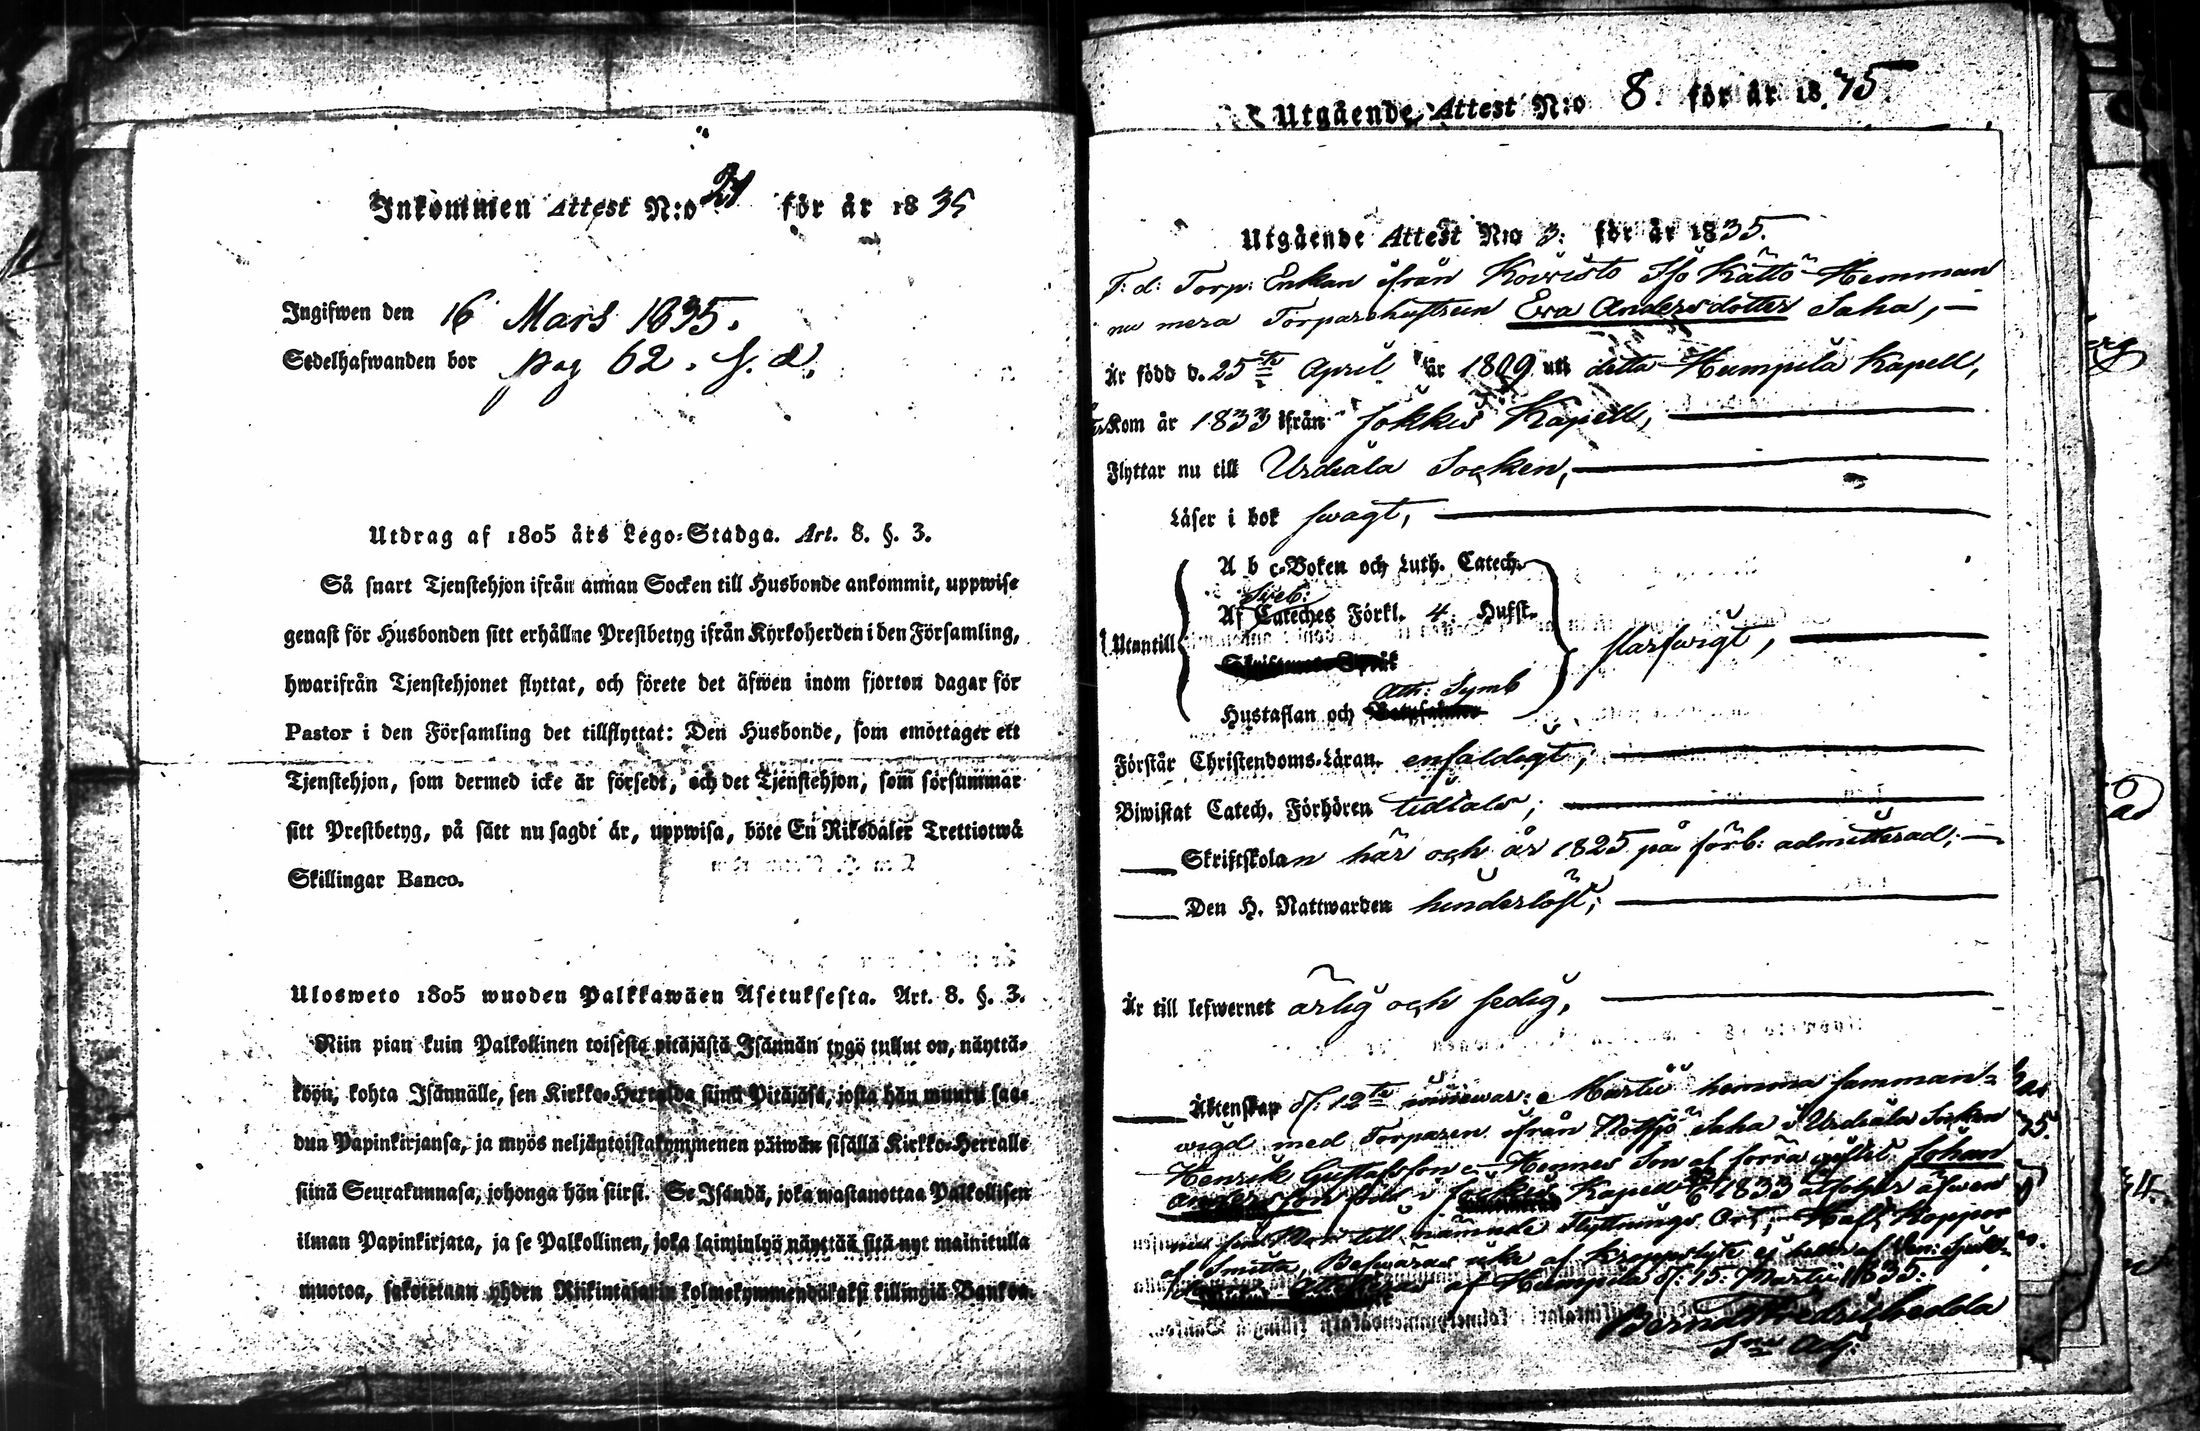 Inkommen Attest N:o 21 för år 1835
Ingifwen den 16 Mars 1835.
Sedelhafwanden bor pag 62.
Utdrag af 1805 års Lego-Stadga. Art. 8. §. 3.
Så snart Tjenstehjon ifrån annan Socken till Husbonde ankommit, uppwise
genast för Husbonden sitt erhållne Prestbetyg ifrån Kyrkoherden i den Församling,
hwarifrån Tjenstehjonet flyttat, och förete det äfwen inom fjorton dagar för
Pastor i den Församling det tillflyttat: Den Husbonde, som emottager ett
Tjenstehjon, som dermed icke är försedt, och det Tjenstehjon, som försummar
sitt Prestbetyg, på sätt nu sagdt är, uppwisa, böte En Riksdaler Trettiotwå
Skillingar Banco.
Ulosweto 1805 wuoden Palkkawäen Asetuksesta. Art. 8. §. 3.
Niin pian kuin Palkollinen toisesta pitäjästä Isännän tygö tullut on, näyttä-
köön, kohta Isännälle, sen Kirkko-Herralda siinä Pitäjäsä, josta hän muutti saa-
dun Papinkirjansa, ja myös neljäntoistakymmenen päiwän sisällä Kirkko-Herralle
siinä Seurakunnasa, johonga hän siirsi. Se Isändä, joka wastanottaa Palkollisen
ilman Papinkirjata, ja se Palkollinen, joka laiminlyö näyttää sitä nyt mainitulla
muotoa, sakotetaan yhden Riikintalarin kolmekymmendäkaksi killingiä Bankoa.
Utgående Attest N:o 8. för år 1835.
Utgående Attest N:o 3: för år 1835.
F: d: Torp: Enkan ifrån Koivisto Kättö Hemman
nu mera Torparehustrun Eva Andersdotter Saha,
Är född d. 25te April år 1809 uti detta Humpila Kapell,
Kom år 1833 ifrån Jokkis Kapell,
Flyttar nu till Urdiala Socken,
Läser i bok swagt,
A b c-Boken och Luth. Catech.
Sveb:
Af Cateches Förkl. 4. Hufst.
Utantill
Ath: Symb
Hustaflan och
Förstår Christendoms-Läran. enfaldigt;
Biwistat Catech. Förhören tidtals;
Skriftskolan här och år 1825 på förb: admitterad;
Den H. Nattwarden hinderlöst;
Är till lefwernet ärlig och sedig,
Äktenskap d: 12te Martii hemma samman-
vigd med Torparen ifrån Notsjö Saha i Urdiala Socken
Henrik Gustafsson Hennes Son af förra giftet Johan
Andersson född i Jockis Kapell 1833 åtföljer äfwen
till nämnde Flyttnings Ort, Haft Koppor
af Smitta, Beswäras icke af Kroppslyte ej heller af Ven: Sjuk-
Attesteras af Humpila d: 15: Martii 1835: